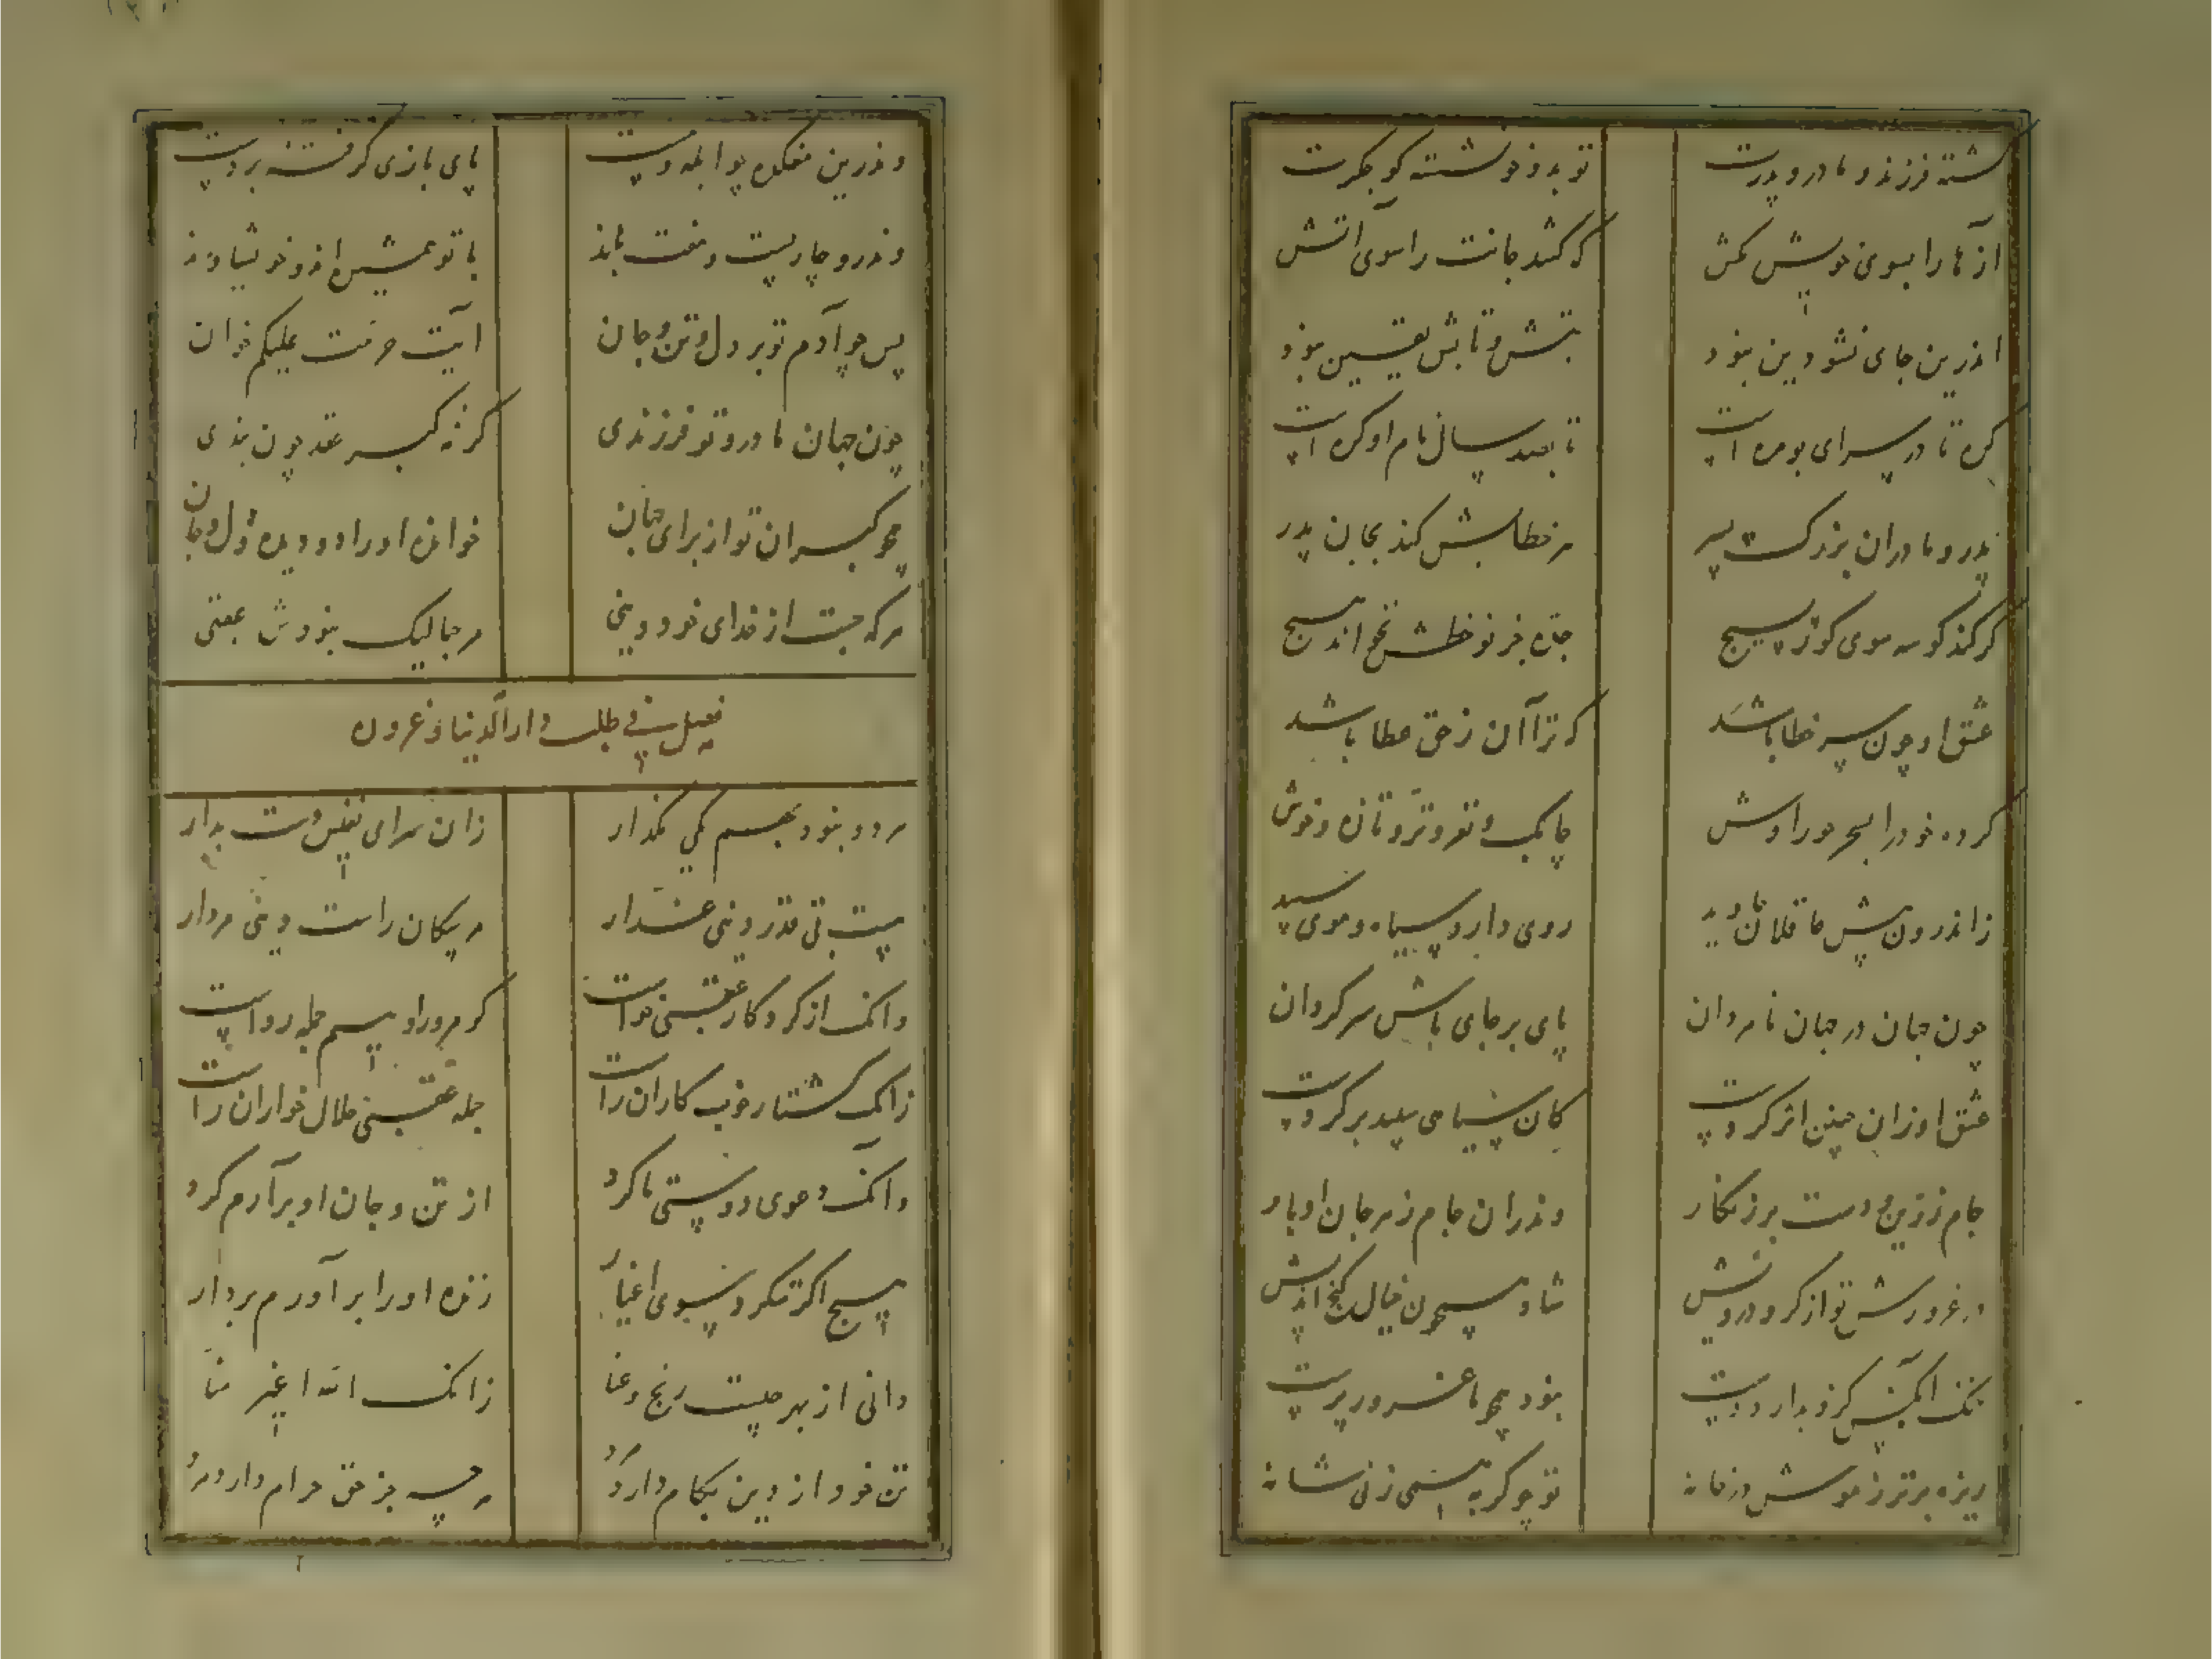 کشته فرزند و مادر و پدرت تو بدو خوش نشسته کو جگرت
از را بسوی خویش مکش که کشد جانت را سوی آتش
اندرین جای نشو دین نبود تبش و تابش یقین نبود
کره تا در سرای بومره است تا بصد سال نام او کره است
پدر و مادران بزرگ پسر مر خطابش کند بجان پدر
گر کند کوسه سوی گور بسیج جده جز نو خطش نخواند هیچ
عشق او چون سر خطا باشد که ترا آن ز حق عطا باشد
کرده خود را بسحر حورا وش چابک و نغز و تر و تازه و خوش
ز اندرون پیش عاقلان دید روی دارد سیاه و موی سپید
چون جهان در جهان نامردان پای بر جای باش سرگردان
عشق او ز آن چنین اثر کردست کان سیاهی سپید برکردست
جام زرین و دست پر ز نگار وندران جام زهر جان اوبار
در غرورش توانگر و درویش شاد همچون خیال گنج اندیش
ننگ گرفته دار و دست نبود هیچ ما غرورپرست
ریزه برتر ز موش در خانه تو چو گربه همی زنی شانه
وندرین مغکده چو ابله و مست پای بازی گرفته بر دست
وندرو چار بیست و هفت بلند با تو همشیره‌اند و خویشاوند
پس چو آدم تو بر دل و تن و جان آیت حرمت علیکم خوان
چون جهان مادر و تو فرزندی گر نه گبری عقد چون بندی
همچو گبران تو از برای جهان خوانده او را دو دیده و دل و جان
هر که جست از خدای خود دنیی مرحبا لیک نبودش عقبی
فصل فی طلب دار الدنیا و غروره
هر دو نبود بهم یکی بگذار زان سرای نفیس دست بدار
هست بی قدر دنیی غدار مر سگان راست دینی مردار
وانک از کردگار عقبی خواست گر مرو را دهیم جمله رواست
زانک کشتار خوب کاران راست جمله عقبی حلال خواران راست
وانک دعوی دوستی ما کرد از تن و جان او برآرم گرد
هیچ اگر بنگرد بسوی اغیار زنده او را برآورم بر دار
دانی از بهر چیست رنج و عنا زانک الله اغیر منا
تن خود از دین بکام دارد مرد هرچه جز حق حرام دارد مرد